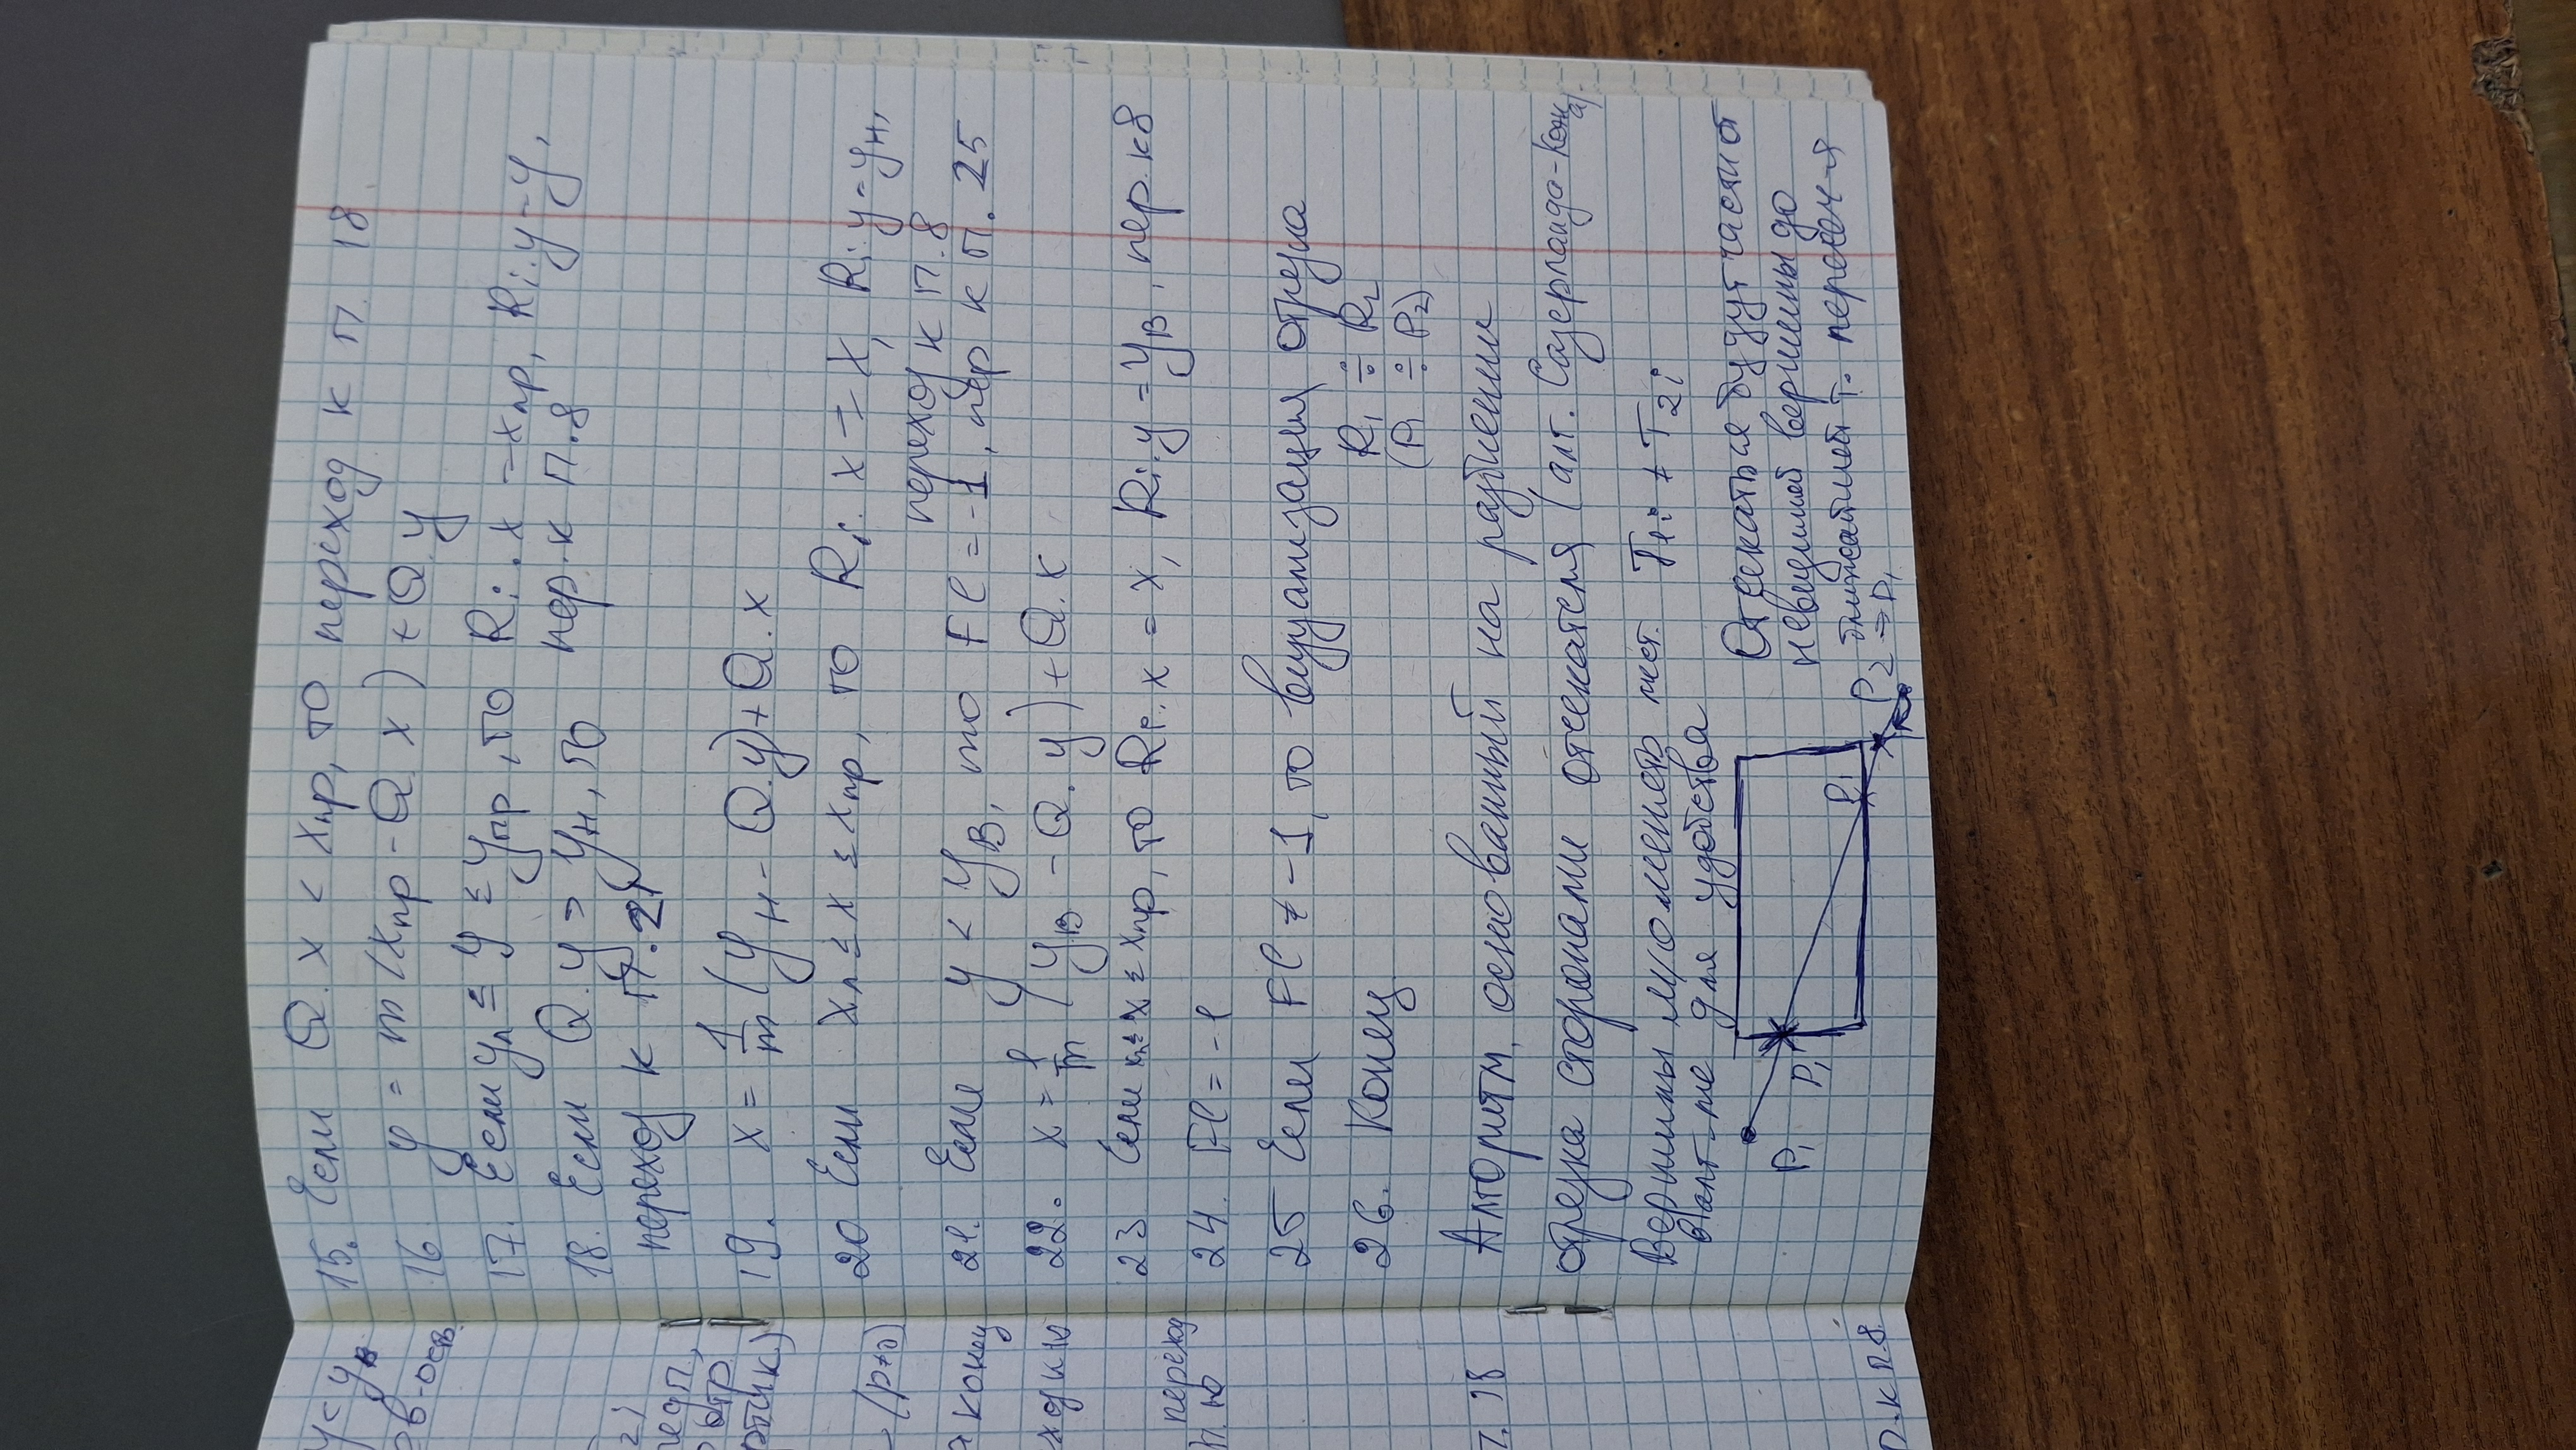 y < yв
ев-ость
2)
недп.,
отр.
ртик.)
(p≠0)
а конец
ход к 10
переход
п. 10
п. 18
п. к п. 8.
15. Если Q.x < xпр, то переход к п. 18
16 y = m (xпр - Q.x) + Q.y
17. Если yл ≤ y ≤ yпр, то Ri.x = xпр, Ri.y = y,
пер. к п. 8
18. Если Q.y > yн, то
переход к п. 21
19. x = 1/m (yн - Q.y) + Q.x
20 Если xл ≤ x ≤ xпр, то Ri.x = x, Ri.y = yн,
переход к п. 8
21. Если y < yв, то Fl = -1, пер к п. 25
22. x = 1/m (yв - Q.y) + Q.x
23 Если xл ≤ x ≤ xпр, то Ri.x = x, Ri.y = yв, пер. к 8
24. Fl = -1
25 Если Fl ≠ -1, то визуализация отрезка
R1 ÷ R2
(P1 ÷ P2)
26. Конец
Алгоритм, основанный на разбиении
отрезка сторонами отсекателя (алг. Сазерланда-Коэна).
Вершины можно менять мест. T1i ≠ T2i
в алг-ме для удобства
Отсекаться будут части от
невидимой вершины до
ближайшей т. пересеч-я
P1
P1
P1
P2 → P1